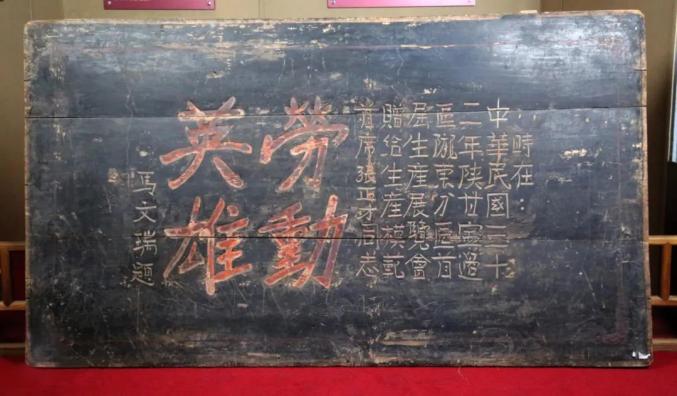 時在：
中華民國三十
二年陝甘寧邊
區隴東分區首
屆生產展覽會
贈給生產模範
首席張正才同志
勞動
英雄
馬文瑞題